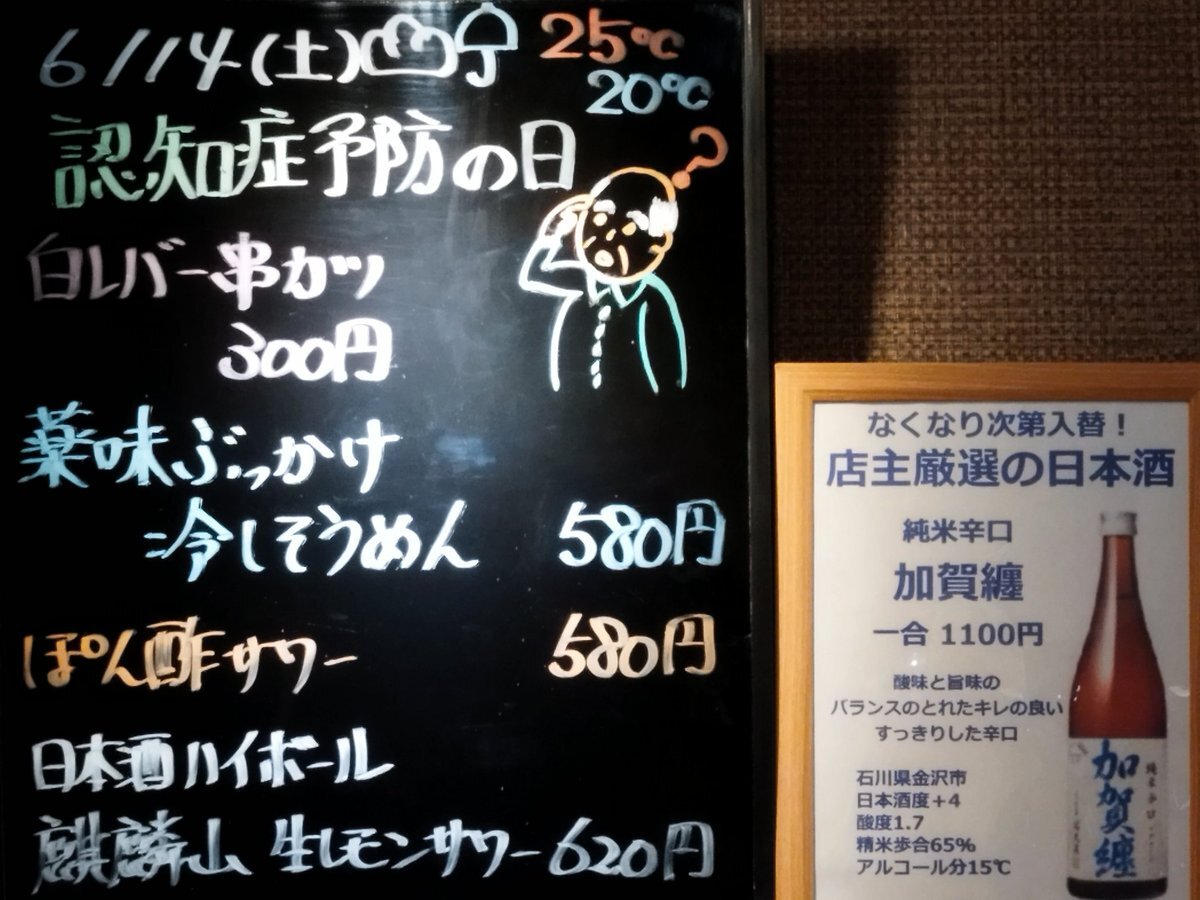 6/14(土) 25℃
20℃
認知症予防の日
?
白レバー串カツ
300円
薬味ぶっかけ
冷しそうめん 580円
ぽん酢サワー 580円
日本酒ハイボール
麒麟山 生レモンサワー 620円
なくなり次第入替！
店主厳選の日本酒
純米辛口
加賀纏
一合 1100円
酸味と旨味の
バランスのとれたキレの良い
すっきりした辛口
石川県金沢市
日本酒度＋4
酸度1.7
精米歩合65%
アルコール分15℃
加賀纏
純米辛口